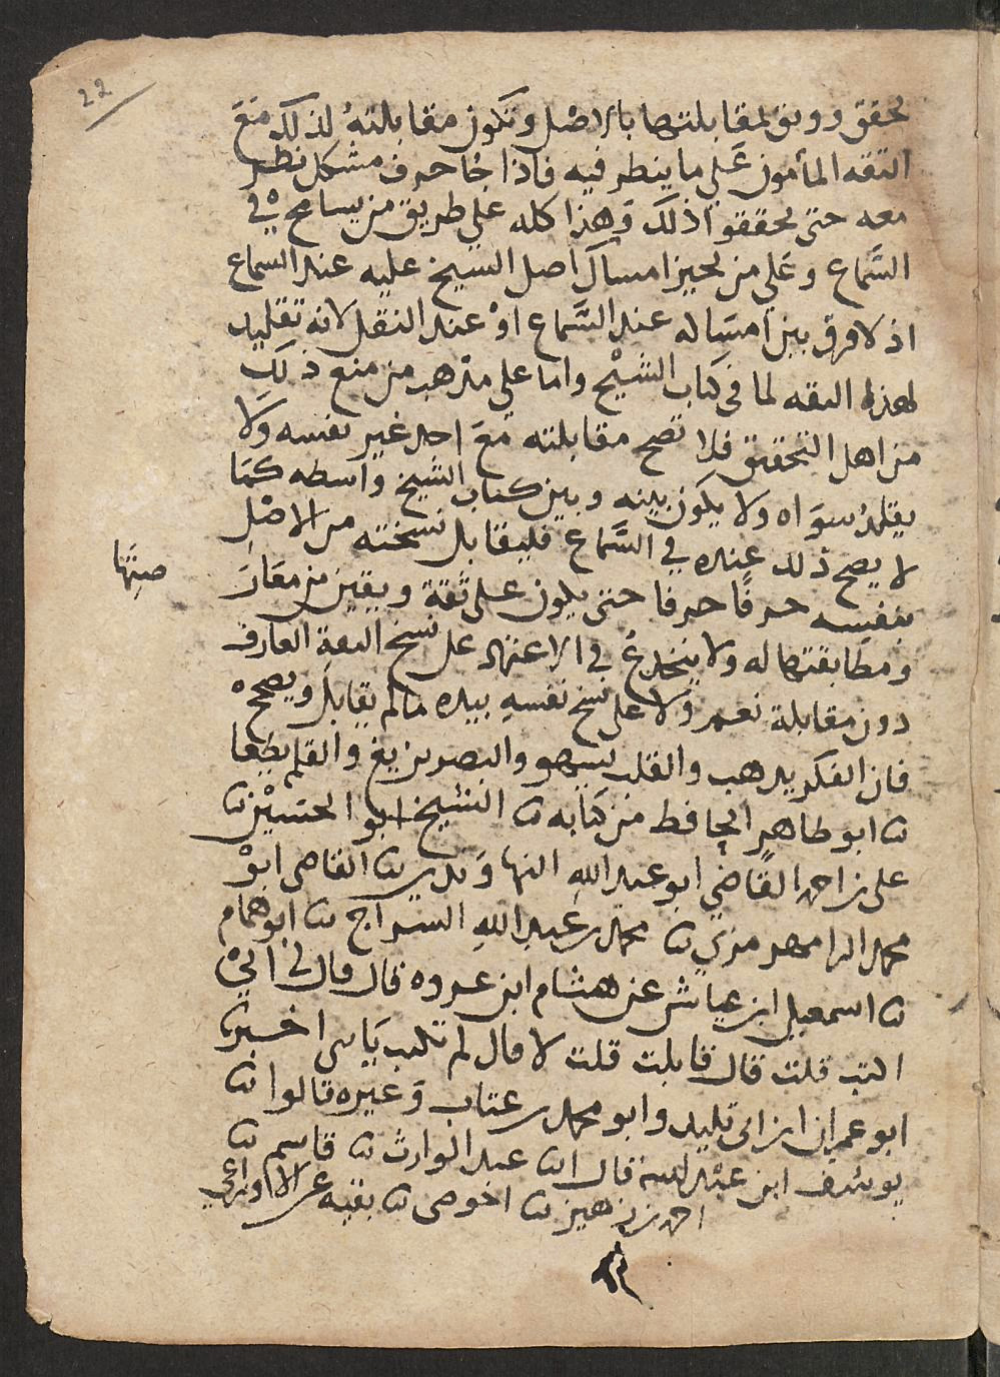 22
محقق ووثق لمقابلتها بالاصل وتكون مقابلته لذلك مَعَ
الثقه المأمون عَلي ما ينظر فيه فاذا جُا حرف مشكل نظر
معه حتى يحققوا ذلك وهذا كله علي طريق من يسامح في
السَّماع وعَلي من يجيز امساك اصل الشيخ عليه عند السماع
اذ لا فرق بين امسَاله عند السَّماع اوْ عند النقل لانه تقليد
لهذا الثقه لما في كتاب الشيْخ واما علي مذهب من منع ذلكَ
من اهل التحقيق فلا تصح مقابلته معَ احد غير نفسه وَلا
يقلدُ سوَاه ولا يكون بينه وبين كتاب الشيخ واسطه كمَا
لا يصح ذلك عنده في السَّماع فليقابل نسخته من الاصْلِ
بنفسِه حرفًا حرفا حتى يكون على ثقة ويقين من معَارَ
ضتِهَا
ومطابقتها له ولا ينخدعُ في الاعتماد على نسخ الثقةِ العارف
دون مقابلة نعم وَلا على نسخ نفسهِ بيده ما لم يقابل ويصحح
فان الفكر يذهب والقلب يسهو والبصر يزيغ والقلم يطغا
نا ابو طاهر الحافظ من كتابه نا الشيخ ابو الحسيْن نا
علي بن احمد القَاضي ابو عبد اللهِ النهاوَندي نا القاضي ابوْ
محمد الرامهرمزي نا محمد بن عَبد اللهِ السراج نا ابو همام
نا اسمعيل ابن عياش عن هشام ابن عروه قال قال لى ابيْ
اكتب قلت قال قابلت قلت لا قال لم تكتب يَابني اخبرنا
ابو عمران ابن ابي تليد وابو محمد بن عتاب وَغيره قالوا نا
يوسُف ابن عبْد الله قال انا عبد الوارث نا قاسم نا
احمد بن زهير نا الحوصي نا بقيه عن الاوزاعي